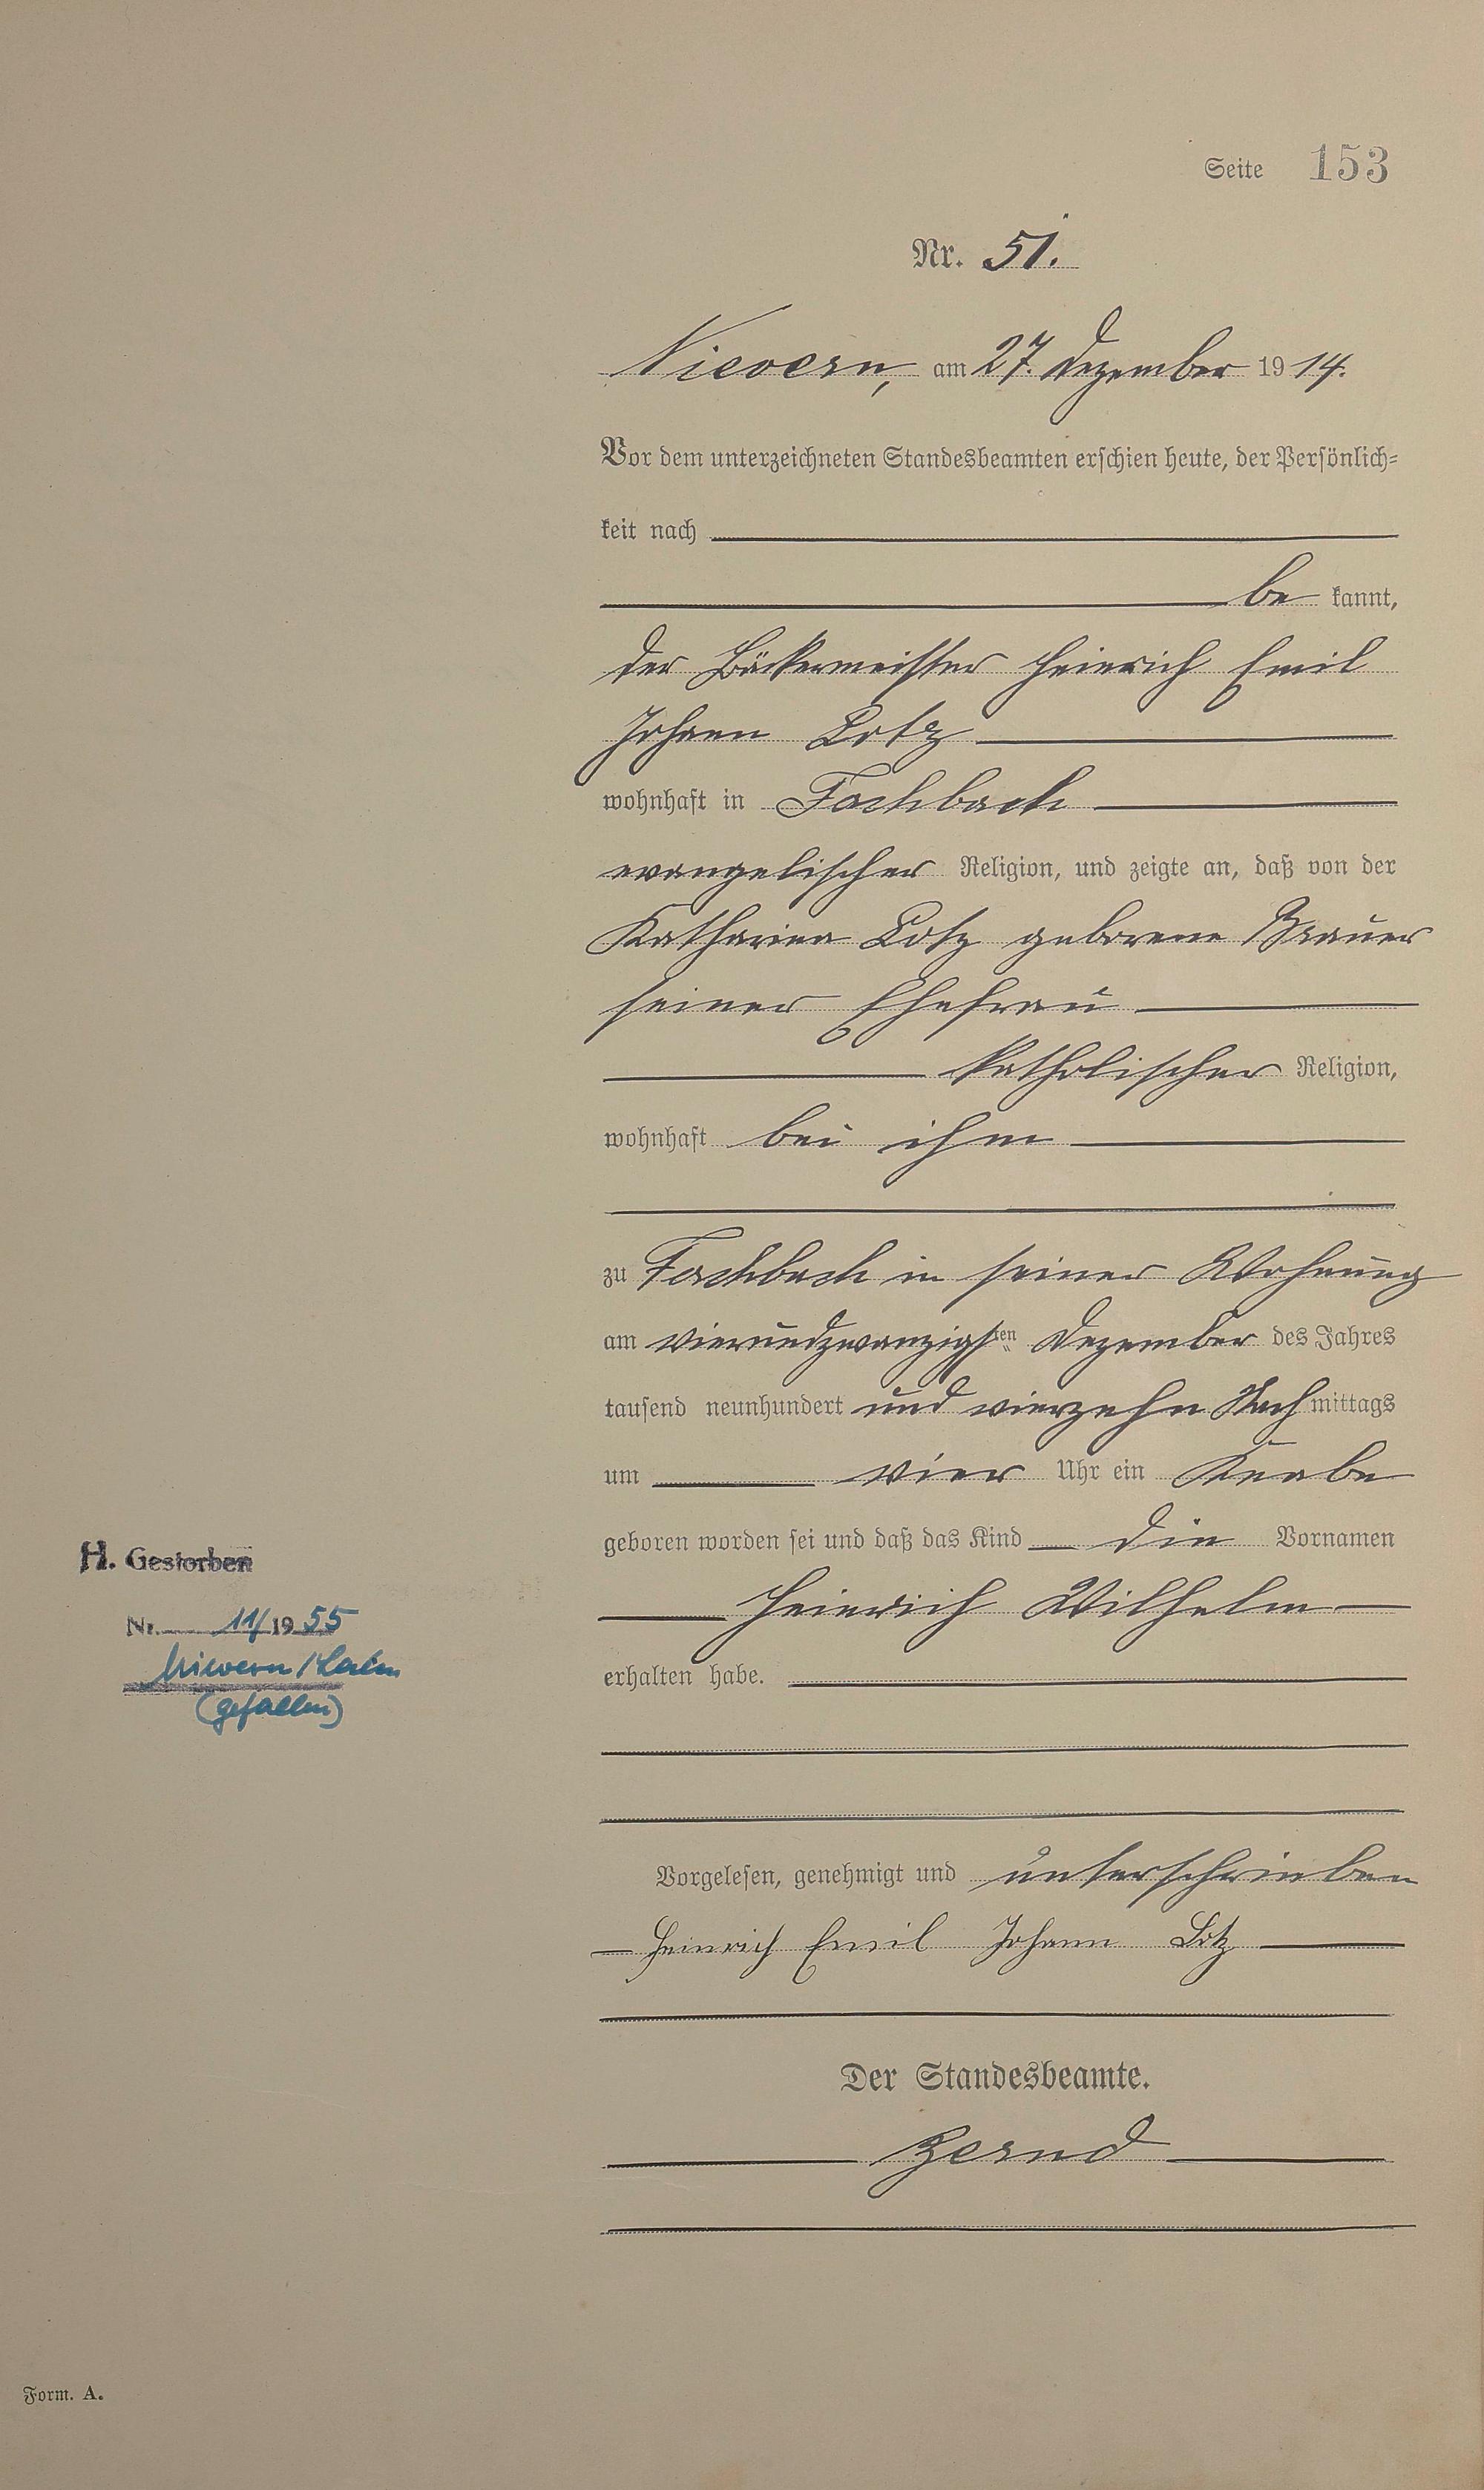 Seite 153
Nr. 51.
Nievern, am 27. Dezember 1914.
Vor dem unterzeichneten Standesbeamten erschien heute, der Persönlich=
keit nach
be kannt,
der Bäckermeister Heinrich Emil
Johann Lotz
wohnhaft in Fachbach
evangelischer Religion, und zeigte an, daß von der
Katharina Lotz geborene Brauer
seiner Ehefrau
katholischer Religion,
wohnhaft bei ihm
zu Fachbach in seiner Wohnung
am vierundzwanzigsten Dezember des Jahres
tausend neunhundert und vierzehn Nach mittags
um vier Uhr ein Knabe
geboren worden sei und daß das Kind die Vornamen
Heinrich Wilhelm
erhalten habe.
H. Gestorben
Nr. 11/1955
Nievern/Lahn
(gefallen)
Vorgelesen, genehmigt und unterschrieben
Heinrich Emil Johann Lotz
Der Standesbeamte.
Zernd
Form. A.